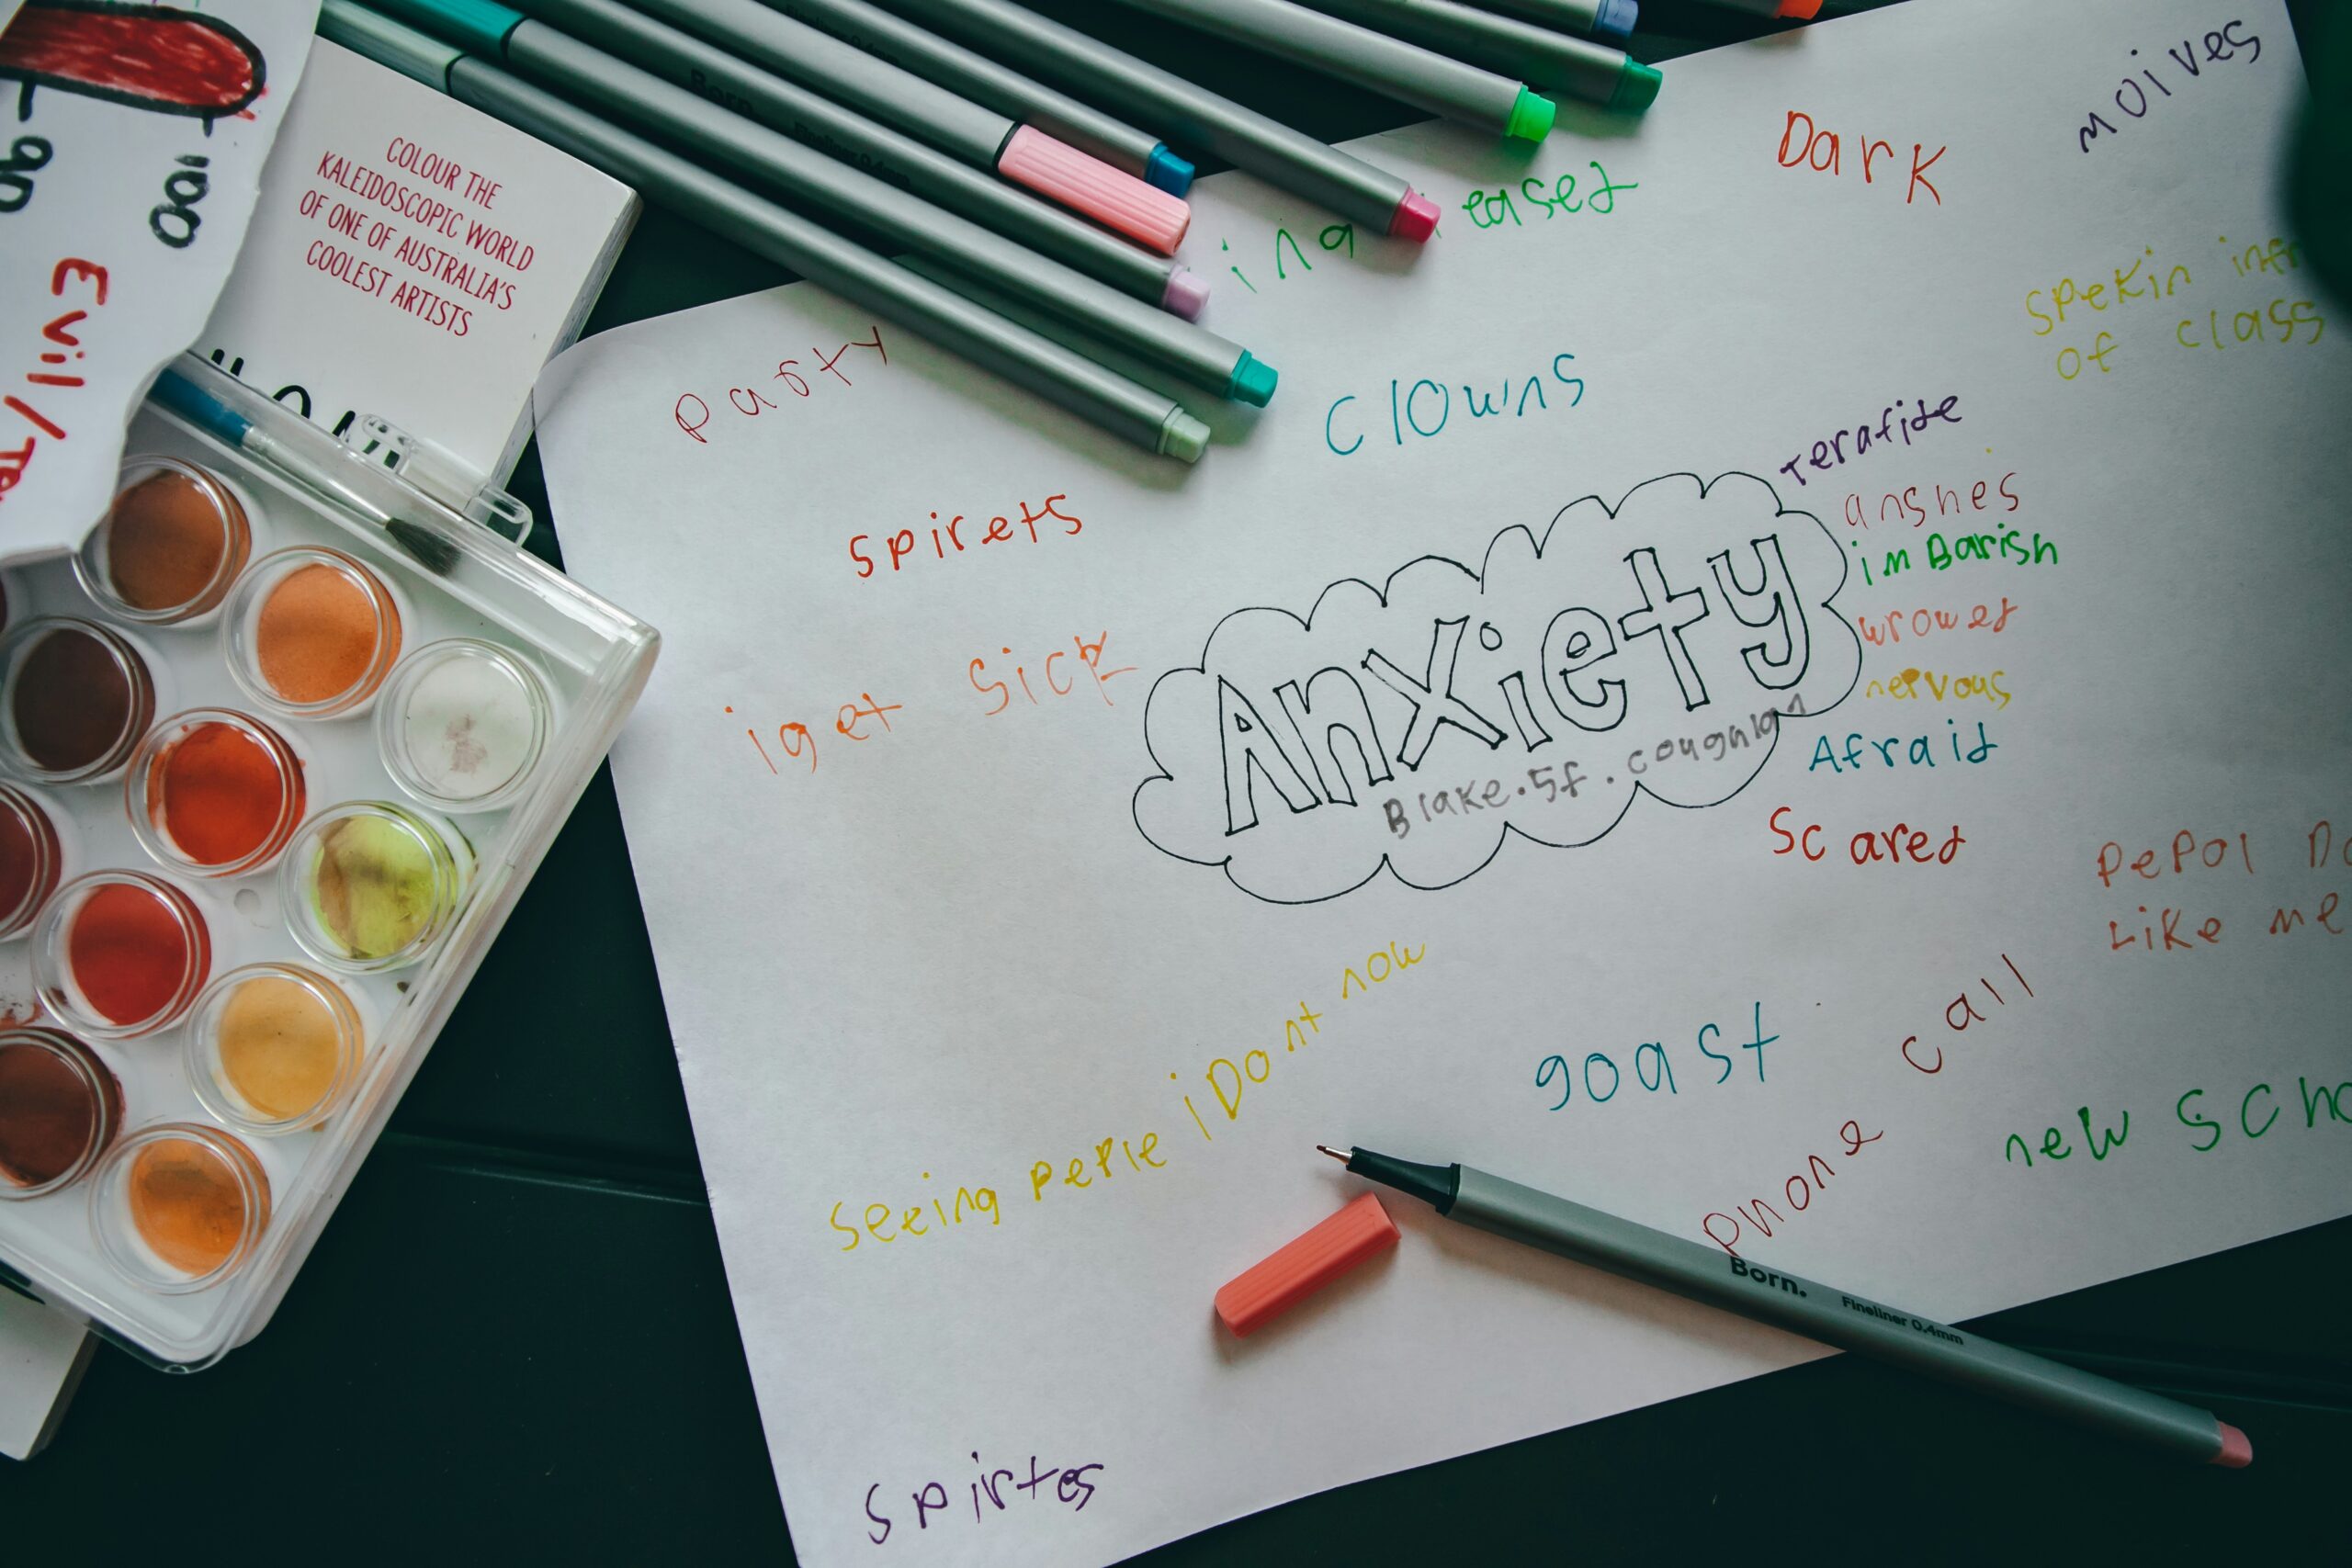 COLOUR THE
KALEIDOSCOPIC WORLD
OF ONE OF AUSTRALIA'S
COOLEST ARTISTS
100
Evil/
Born.
Fineliner 0.4mm
moives
Dark
eased
spekin
of class
party
clowns
spirets
terafide
anshes
imBarish
wrowed
nervous
Afraid
Scared
i get sick
Anxiety
Blake.5f.coughlan
pepol
Like me
seeing peple i Dont now
goast
phone call
new
Born. Fineliner 0.4mm
spirtes